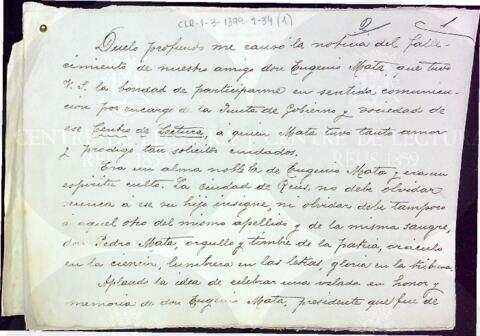 CLR-1-3-1899-9-34 (1)
2 1
Duelo profundo me causó la noticia del falle-
cimiento de nuestro amigo don Eugenio Mata, que tuvo
V. S. la bondad de participarme en sentida comunica-
ción por encargo de la Junta de Gobierno y sociedad de
ese Centro de Lectura, a quien Mata tuvo tanto amor
y prodigó tan solícitos cuidados.
Era un alma noble la de Eugenio Mata y era un
espíritu culto. La ciudad de Reus no debe olvidar
nunca á ese su hijo insigne, ni olvidar debe tampoco
á aquel otro del mismo apellido y de la misma sangre,
don Pedro Mata, orgullo y timbre de la patria, oráculo
en la ciencia, lumbrera en las letras, gloria en la tribuna.
Aplaudo la idea de celebrar una velada en honor y
memoria de don Eugenio Mata, presidente que fué de
CENTRE DE LECTURA
REUS 1859